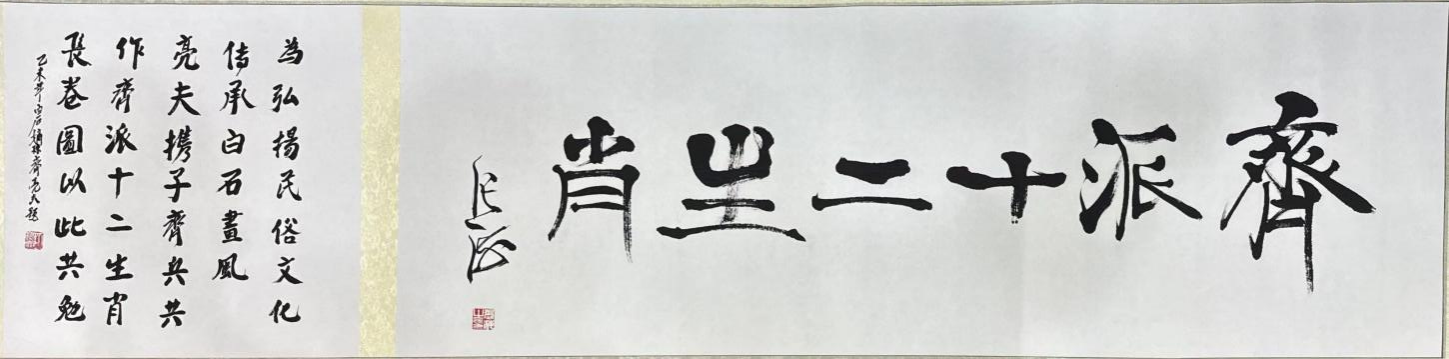 齊派十二生肖
為弘揚民俗文化
傳承白石畫風
亮夫携子齊兵共
作齊派十二生肖
長卷圖以此共勉
乙未年白石嫡孫齊亮夫題